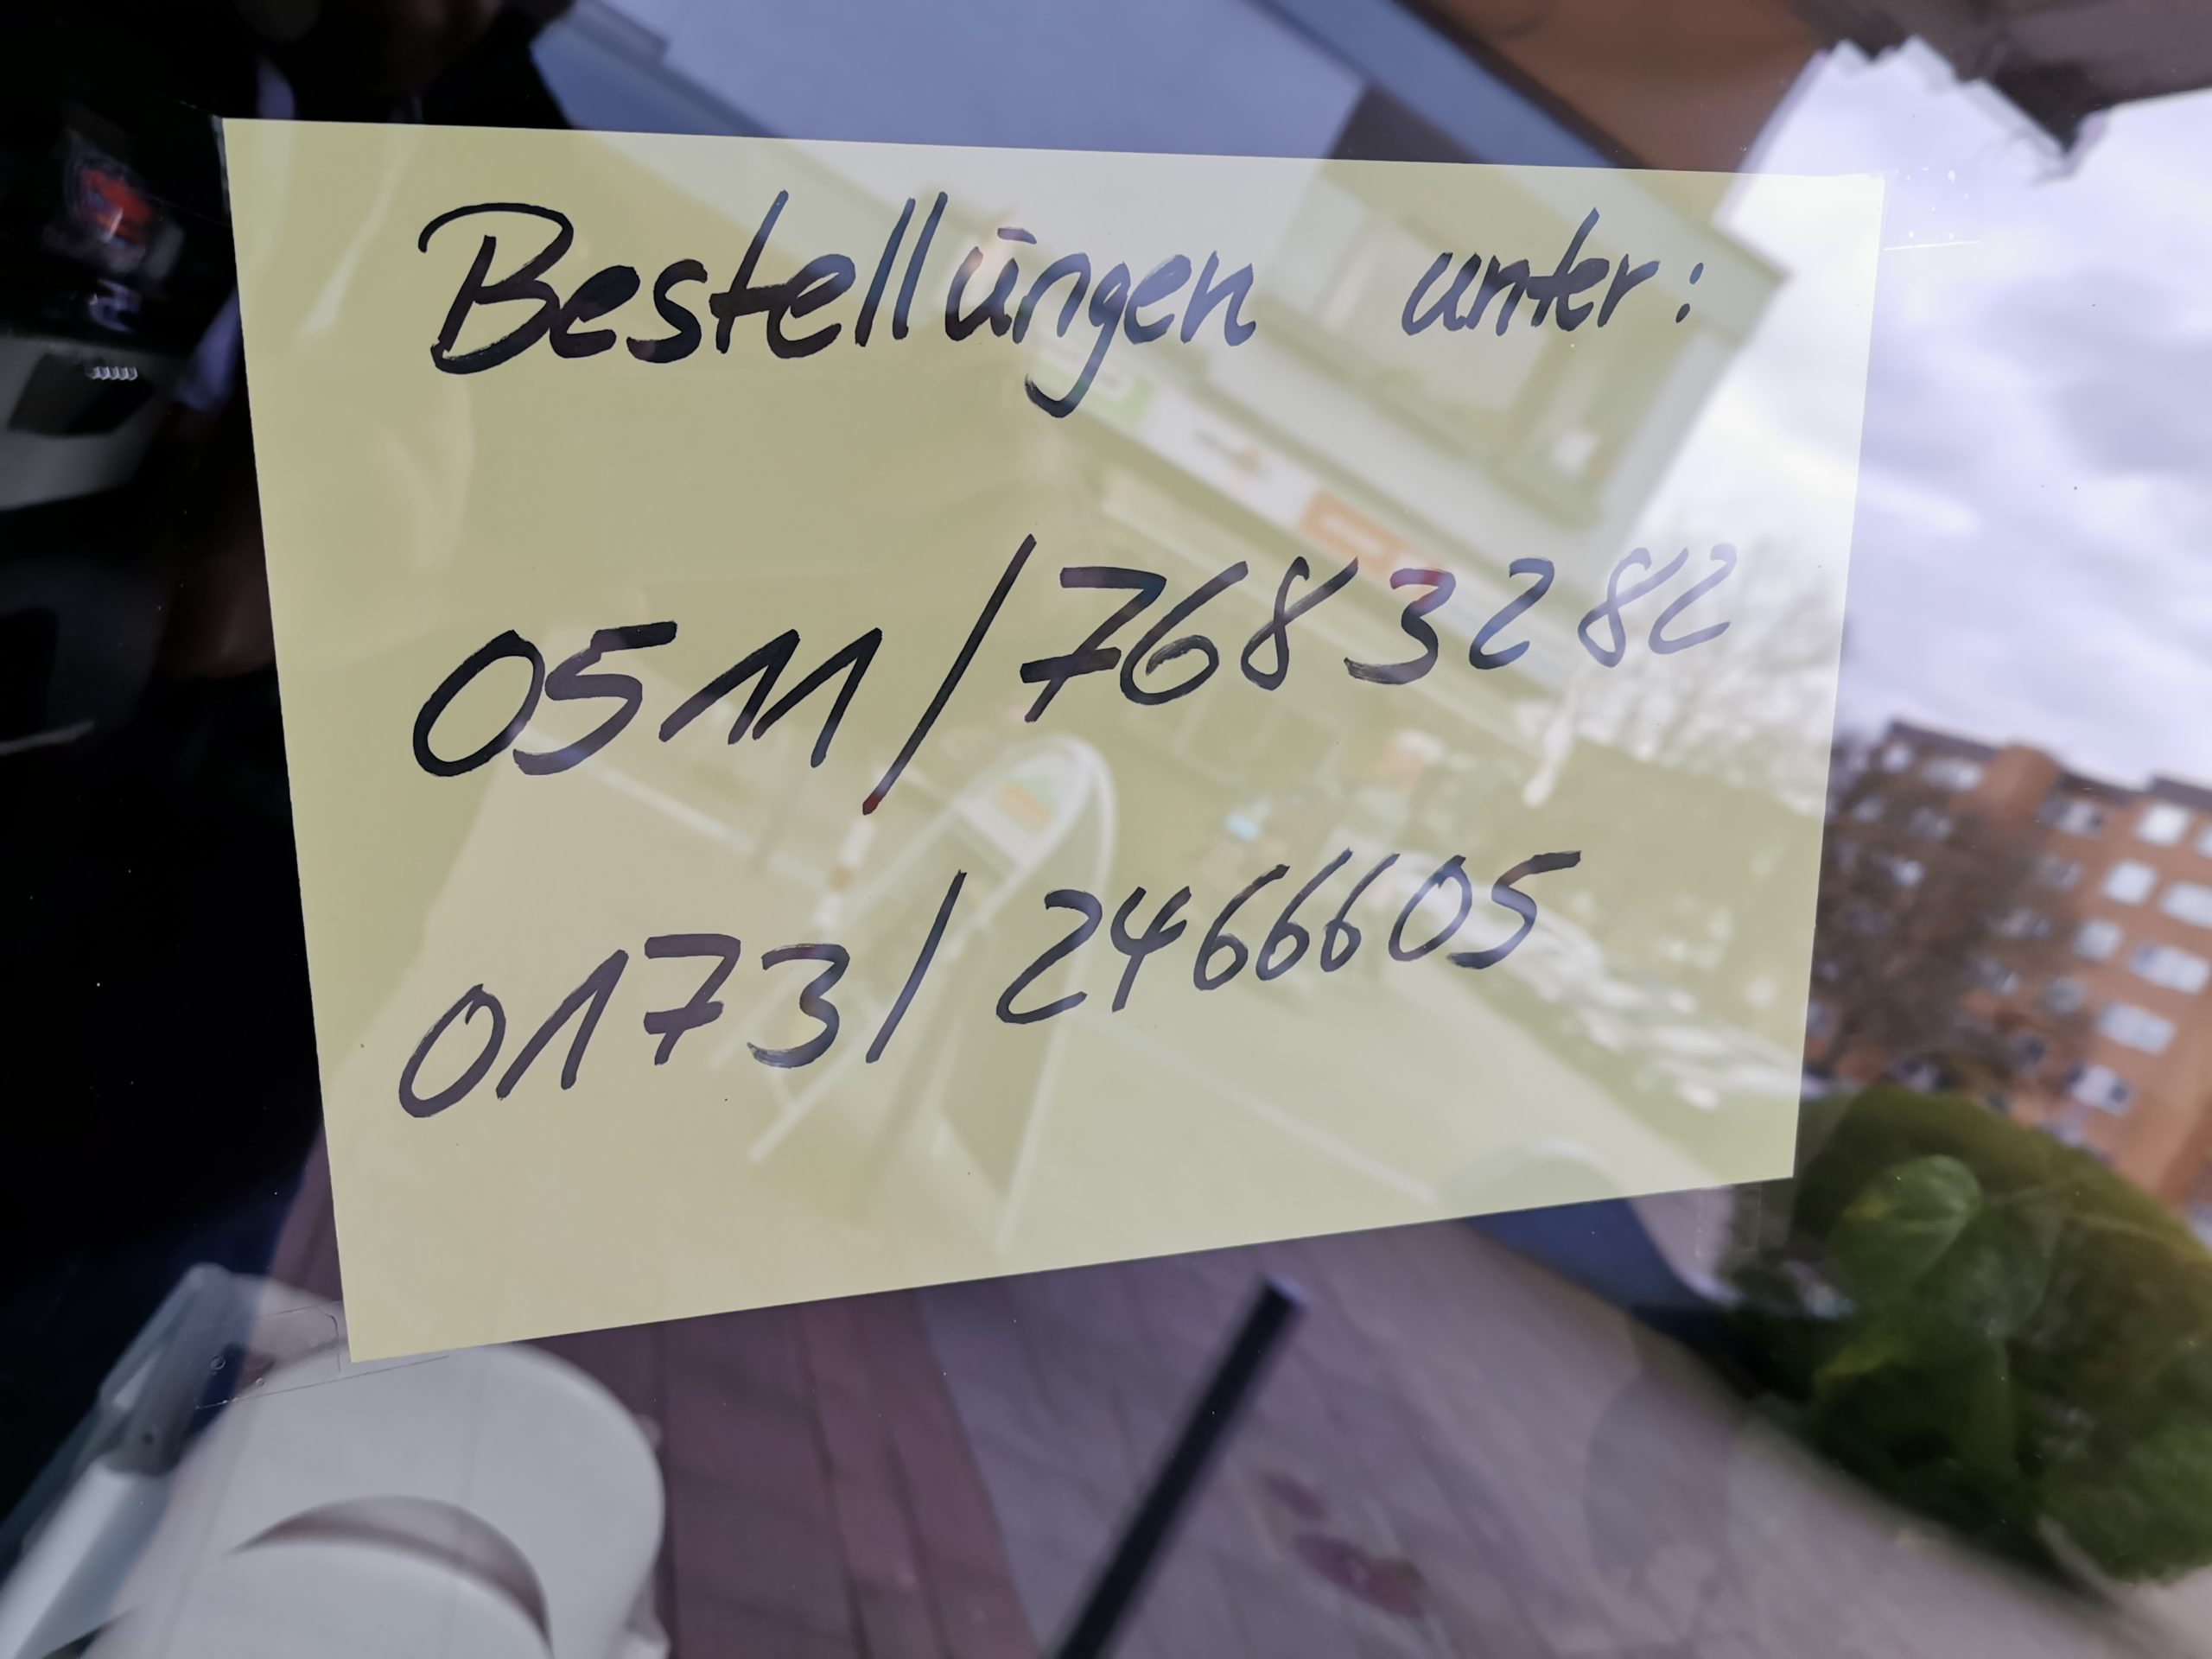 Bestellūngen unter:
0511/7683282
0173/2466605